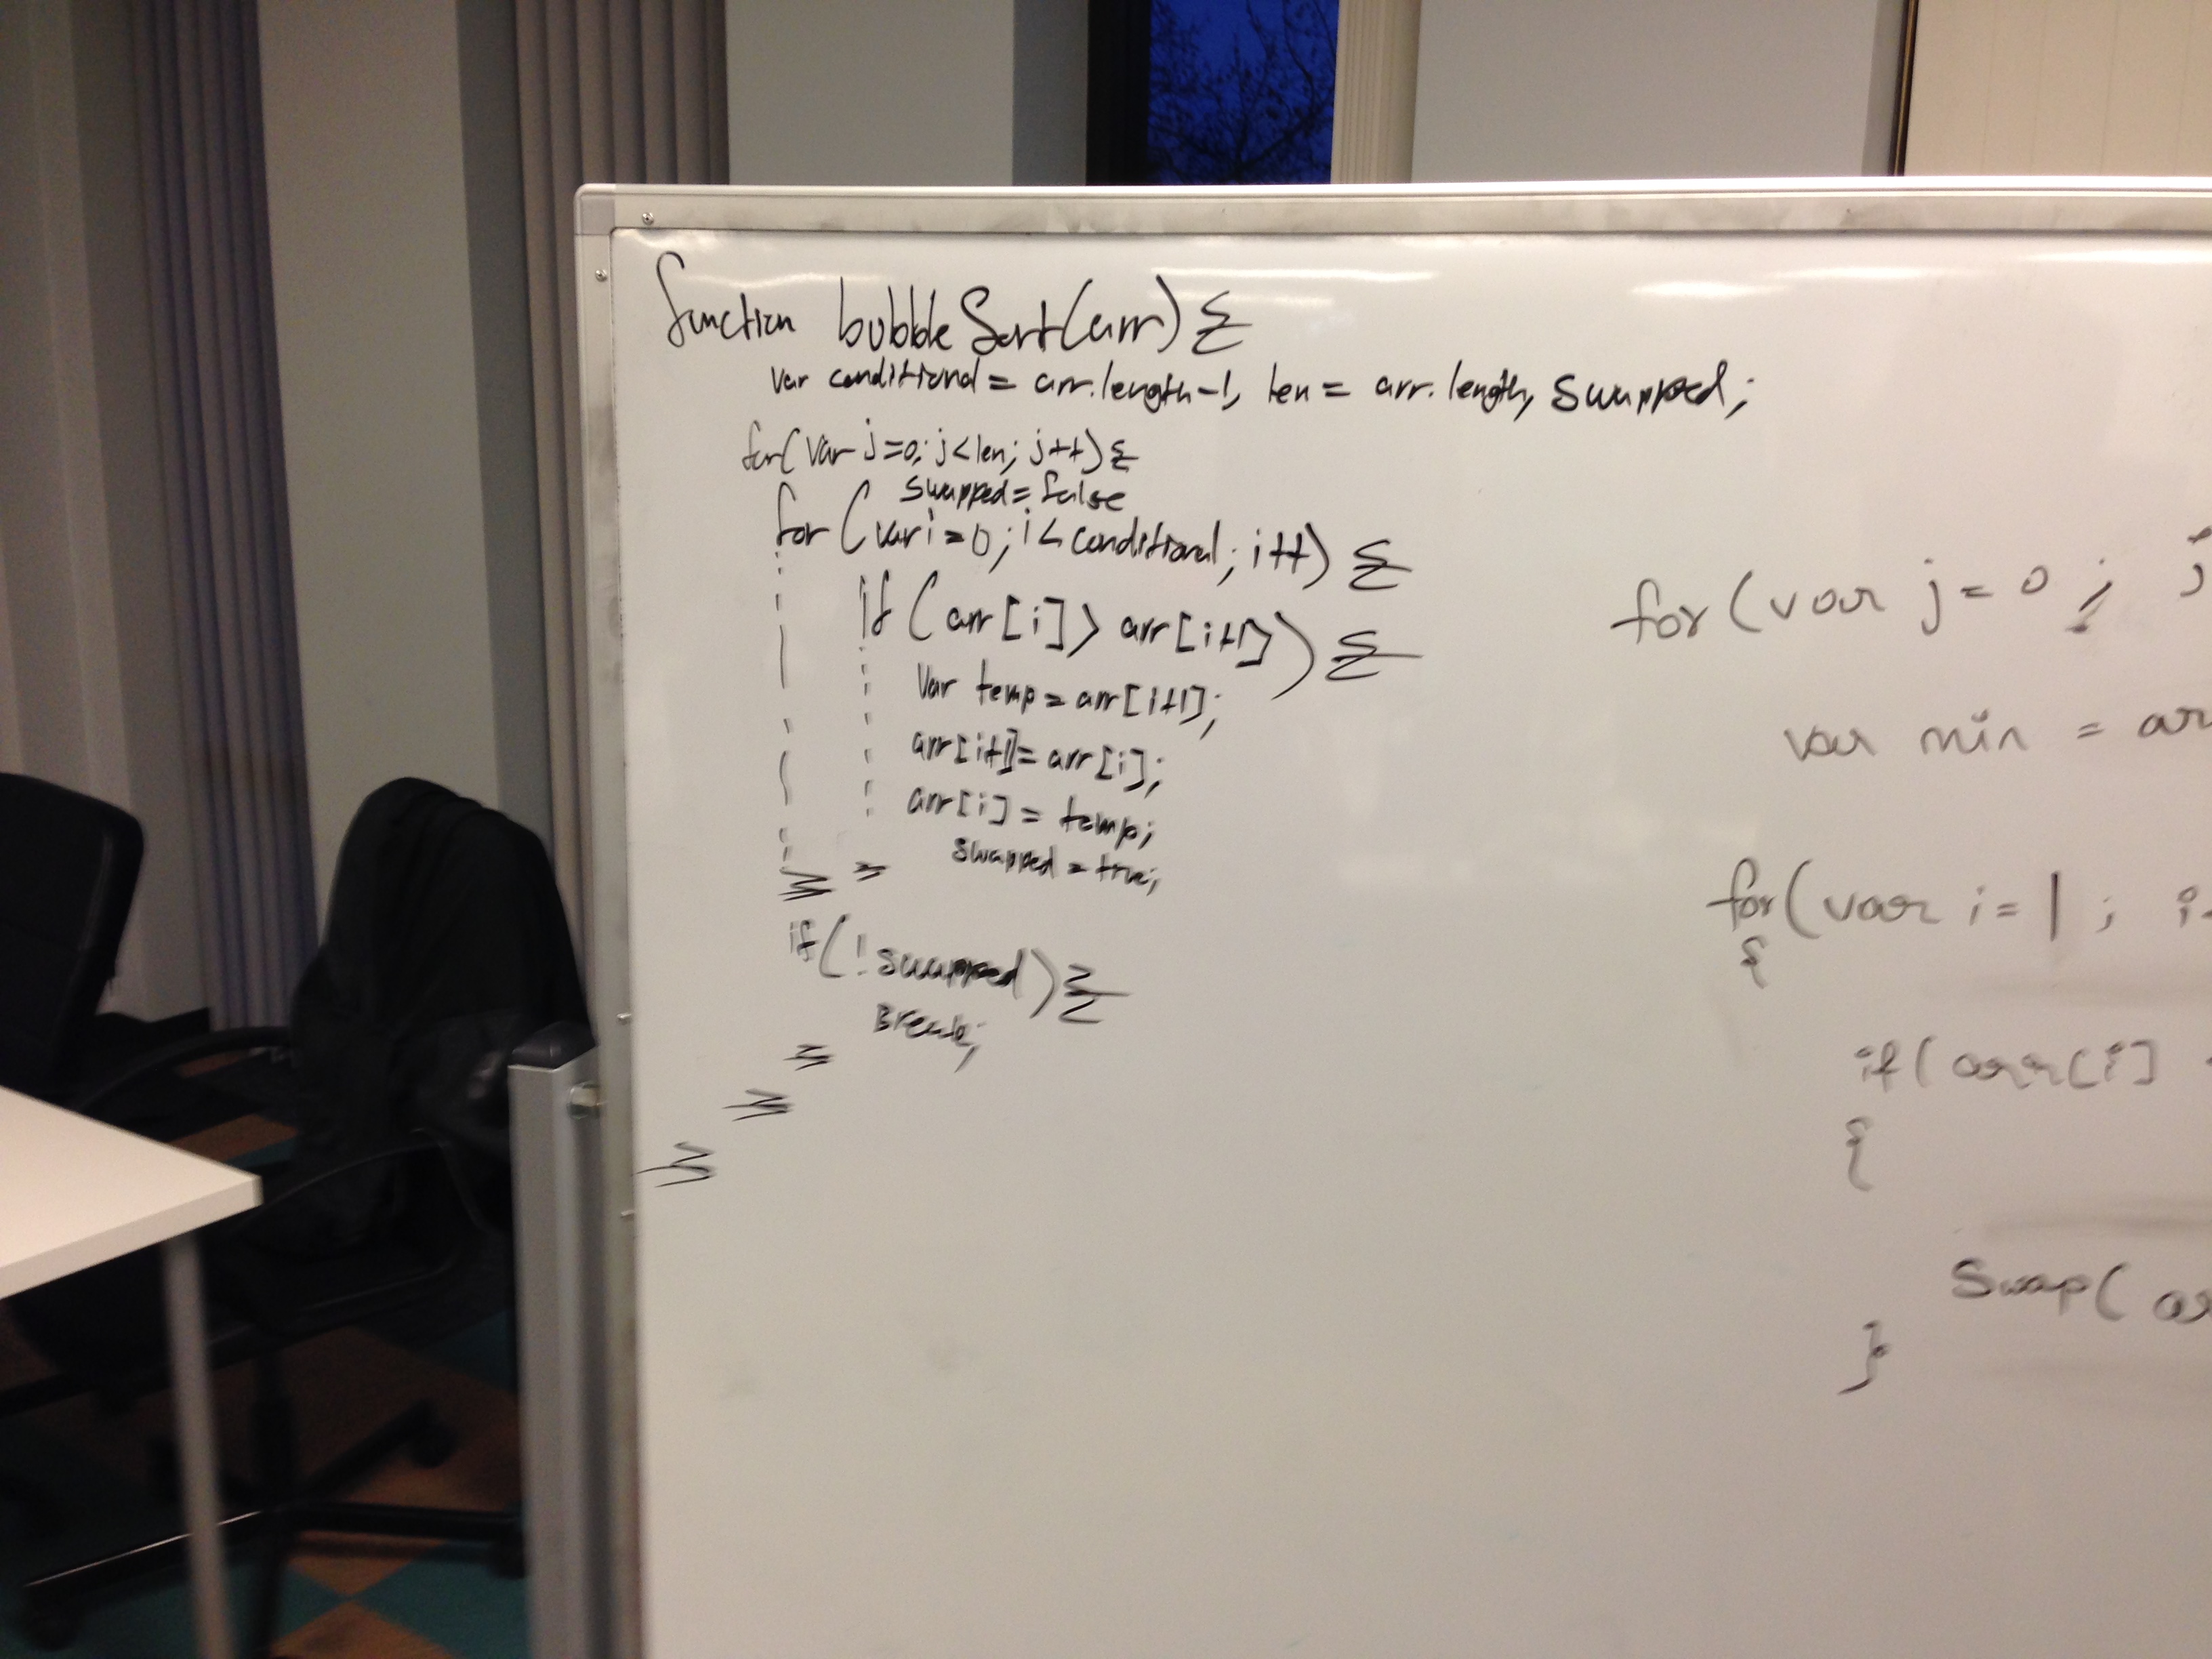 function bubbleSort(arr) {
var conditional = arr.length-1, len = arr.length, swapped;
for(var j=0; j<len; j++) {
swapped = false
for (var i=0; i< conditional; i++) {
if (arr[i] > arr[i+1]) {
var temp = arr[i+1];
arr[i+1] = arr[i];
arr[i] = temp;
swapped = true;
}
}
if(!swapped) {
Break;
}
}
}
for (var j = 0 ; j
var min = ar
for(var i = 1 ; i
{
if( arr[i]
{
Swap( ar
}